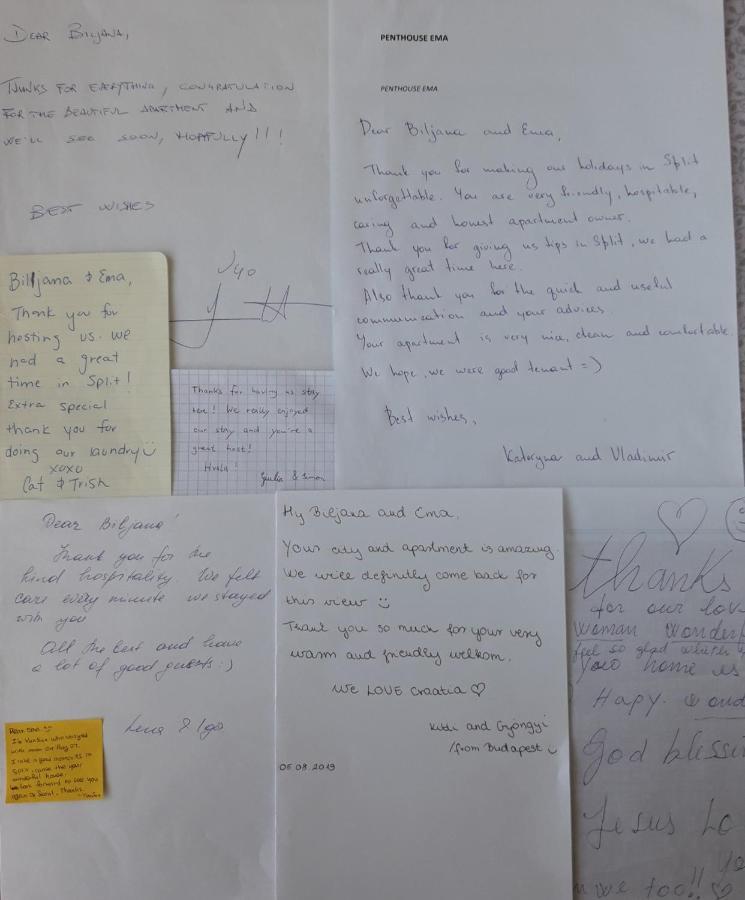 DEAR BILJANA,
THNKS FOR EVERYTHING, CONGRATULATION
FOR THE BEAUTIFUL APARTMENT AND
WE'LL SEE SOON, HOPFULLY!!!
BEST WISHES
PENTHOUSE EMA
PENTHOUSE EMA
Dear Biljana and Ema,
Thank you for making our holidays in Split
unforgettable. You are very friendly, hospitable,
caring and honest apartment owner.
Thank you for giving us tips in Split, we had a
really great time here.
Also thank you for the quick and useful
communication and your advices.
Your apartment is very nice, clean and comfortable.
We hope, we were good tenant =)
Best wishes,
Kateryna and Vladimir
Billjana & Ema,
Thank you for
hosting us. We
had a great
time in Split!
Extra special
thank you for
doing our laundry
xoxo
Cat & Trish
Thanks for having us stay
here! We really enjoyed
our stay and you're a
great host!
Hvala!
Giulia & Simon
Dear Biljana!
Thank you for the
kind hospitality. We felt
care every minute we stayed
with you
All the best and have
a lot of good guests :)
Lena & Igo
Hy Biljana and Ema,
Your city and apartment is amazing.
We will definitly come back for
this view
Thank you so much for your very
warm and friendly welkom.
We LOVE Croatia ♡
Kitti and Gyöngyi
/from Budapest
05.08.2019
thanks
for our lov
woman wonderf
feel so glad
your home is
Hapy. and
God blessin
Jesus Lo
yo
we too!!
Dear Ema.
on Aug 07.
house.
look forward to see you
again Seoul. Thanks.